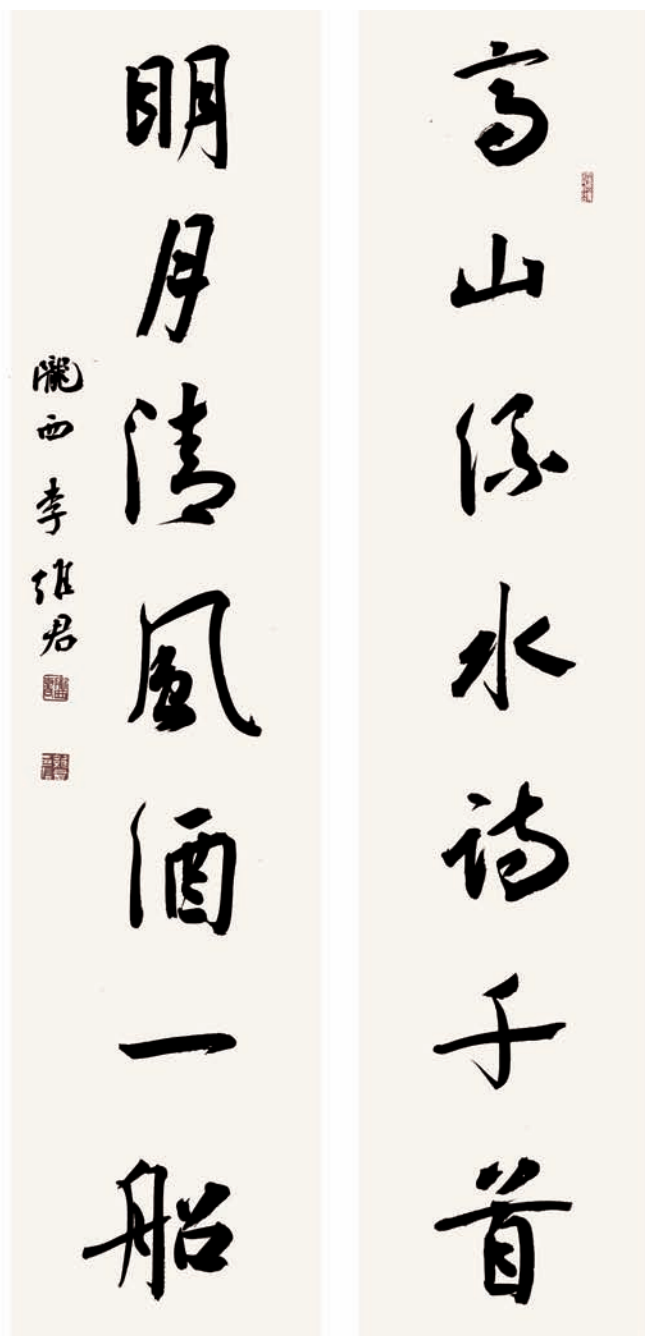 高山流水诗千首
明月清風酒一船
隴西李维君